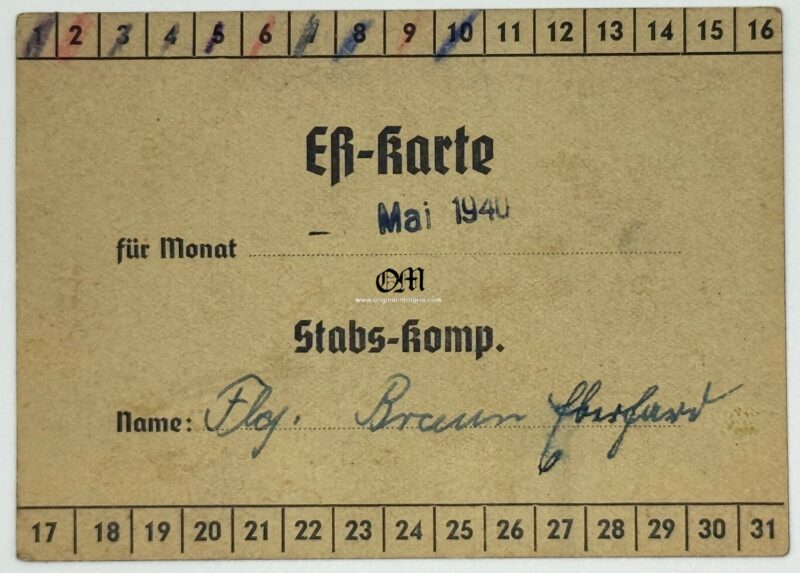 1 2 3 4 5 6 7 8 9 10 11 12 13 14 15 16
Eß-Karte
für Monat - Mai 1940
OM
www.original-militaria.com
Stabs-Komp.
Name: Flg. Braun Eberhard
17 18 19 20 21 22 23 24 25 26 27 28 29 30 31